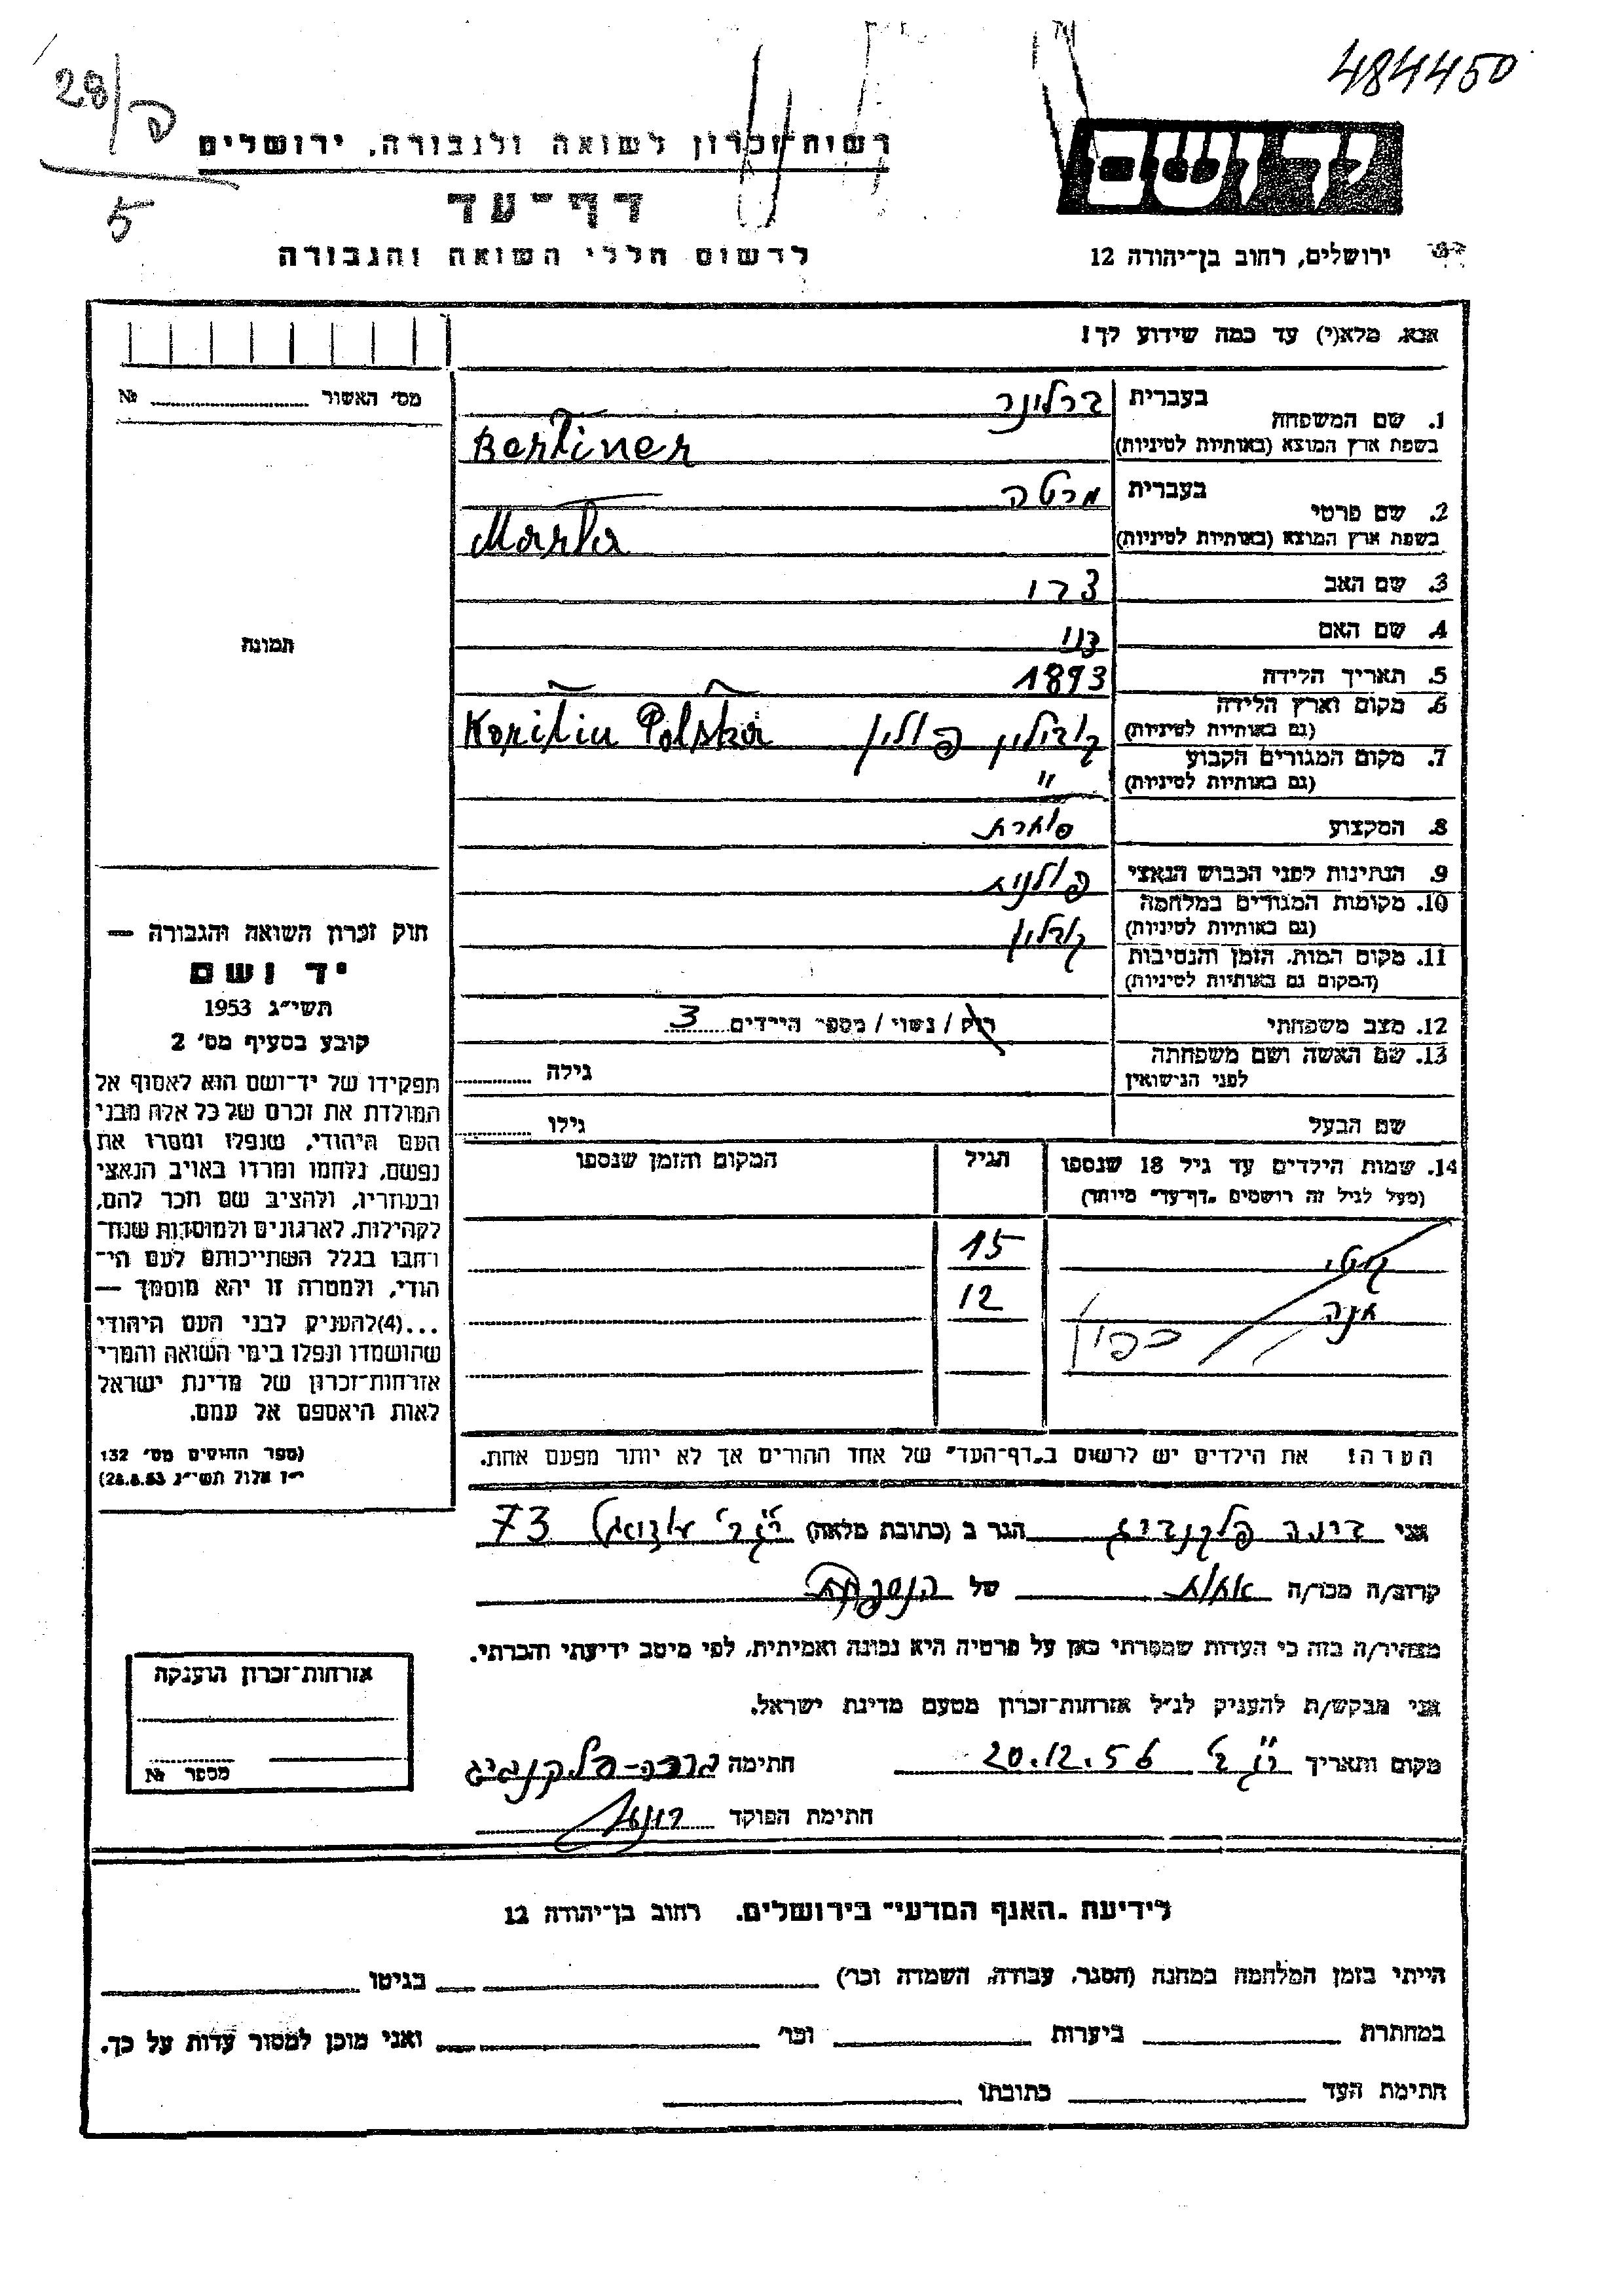 484450
28/פ
5
רשות-זכרון לשואה ולגבורה, ירושלים
יד ושם
דף-עד
לרשום חללי השואה והגבורה
ירושלים, רחוב בן-יהודה 12
אנא, מלא(י) עד כמה שידוע לך!
מס' האשור № ........
1. שם המשפחה
בעברית ברלינר
בשפת ארץ המוצא (באותיות לטיניות) Berliner
2. שם פרטי
בעברית מרטה
בשפת ארץ המוצא (באותיות לטיניות) Marta
3. שם האב
4. שם האם
תמונה
5. תאריך הלידה 1893
6. מקום וארץ הלידה
(גם באותיות לטיניות) פולין Polska
7. מקום המגורים הקבוע
(גם באותיות לטיניות) "
8. המקצוע סוחרת
9. הנתינות לפני הכבוש הנאצי פולנית
10. מקומות המגורים במלחמה
(גם באותיות לטיניות)
11. מקום המות, הזמן והנסיבות
(המקום גם באותיות לטיניות)
12. מצב משפחתי רוק / נשוי / מספר הילדים 3
13. שם האשה ושם משפחתה
לפני הנישואין גילה ........
שם הבעל גילו ........
14. שמות הילדים עד גיל 18 שנספו
(מעל לגיל זה רושמים "דף-עד" מיוחד)
הגיל
המקום והזמן שנספו
קטי 15
אנה 12
הערה! את הילדים יש לרשום ב"דף-העד" של אחד ההורים אך לא יותר מפעם אחת.
חוק זכרון השואה והגבורה —
יד ושם
תשי"ג 1953
קובע בסעיף מס' 2
תפקידו של יד-ושם הוא לאסוף אל
המולדת את זכרם של כל אלה מבני
העם היהודי, שנפלו ומסרו את
נפשם, נלחמו ומרדו באויב הנאצי
ובעוזריו, ולהציב שם וזכר להם,
לקהילות, לארגונים ולמוסדות שנח-
רבו בגלל השתייכותם לעם הי-
הודי, ולמטרה זו יהא מוסמך —
...(4)להעניק לבני העם היהודי
שהושמדו ונפלו בימי השואה והמרי
אזרחות-זכרון של מדינת ישראל
לאות היאספם אל עמם.
(ספר החוקים מס' 132
י"ז אלול תשי"ג 28.8.53)
אני דינה פלקנביג הגר ב (כתובת מלאה) 73
קרוב/ה מכר/ה אחות של הנספית
מצהיר/ה בזה כי העדות שמסרתי כאן על פרטיה היא נכונה ואמיתית, לפי מיטב ידיעתי והכרתי.
אני מבקש/ת להעניק לנ"ל אזרחות-זכרון מטעם מדינת ישראל.
מקום ותאריך 20.12.56 חתימה
חתימת הפוקד
אזרחות-זכרון הוענקה
מספר №
לידיעת "האגף המדעי" בירושלים, רחוב בן-יהודה 12
הייתי בזמן המלחמה במחנה (הסגר, עבודה, השמדה וכו') בגיטו
במחתרת ביערות וכו' ואני מוכן למסור עדות על כך.
חתימת העד כתובתו